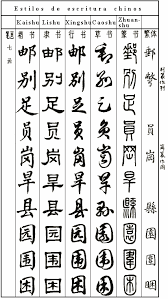 Estilos de escritura chinos
Kaishu Lishu Xingshu Caoshu Zhuan-shu
楷书 隶书 行书 草书 篆书 繁体
邮 邮 邮 邮 郵 郵
别 别 别 别 别
足 足 足 足 足
员 员 员 员 員 員
岗 岗 岗 岗 岡 崗
旱 旱 旱 旱 旱
县 县 县 县 縣 縣
园 园 园 园 園 園
围 围 围 围 圍 圍
困 困 困 困 困